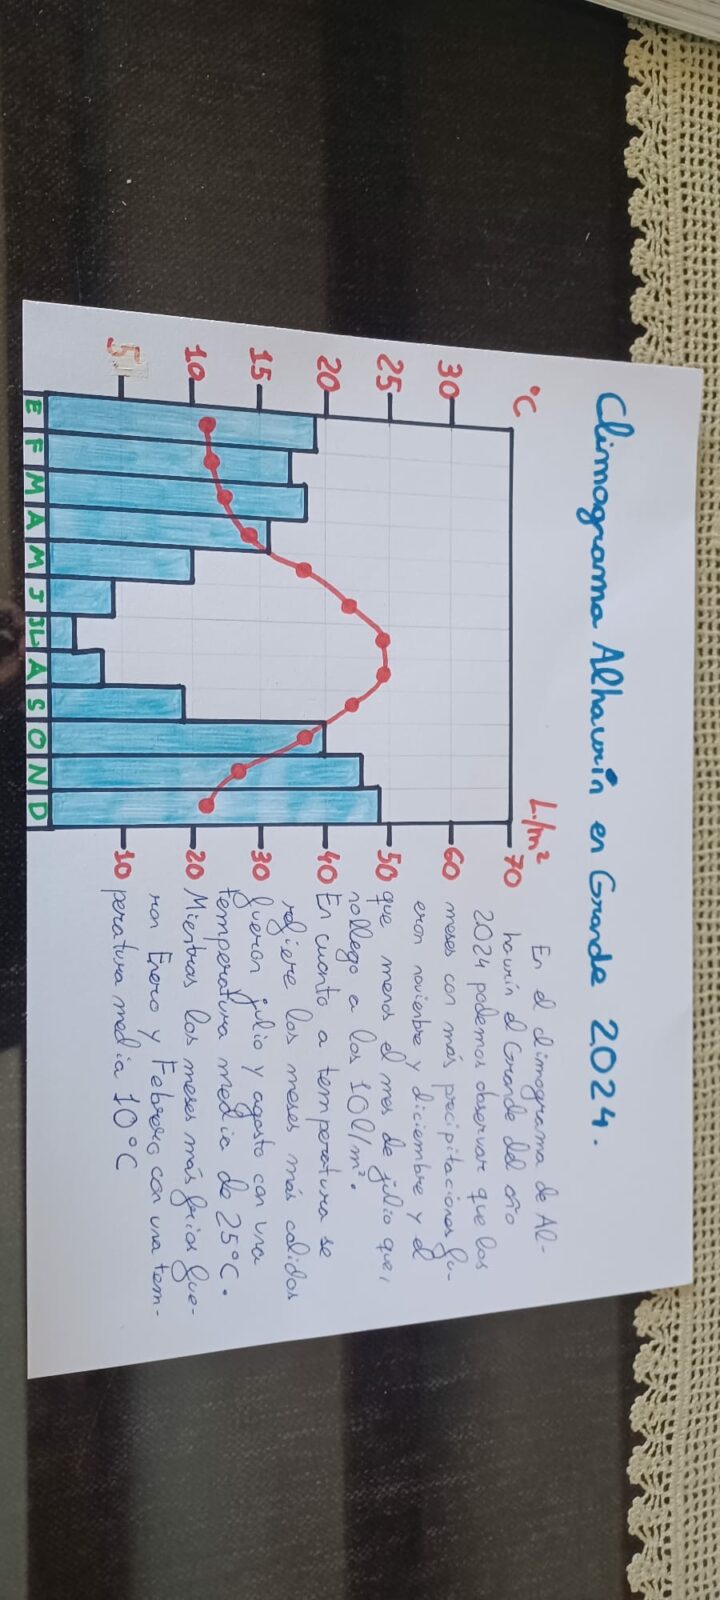 Climograma Alhaurín en Grande 2024.
°C
L./m²
30
25
20
15
10
5
70
60
50
40
30
20
10
E F M A M J JL A S O N D
En el climograma de Al-
haurín el Grande del año
2024 podemos observar que los
meses con más precipitaciones fu-
eron noviembre y diciembre y el
que menos el mes de julio que,
no llego a los 10l/m².
En cuanto a temperatura se
refiere los meses más calidos
fueron julio y agosto con una
temperatura media de 25°C.
Mientras los meses más frios fue-
ron Enero y Febrero con una tem-
peratura media 10°C